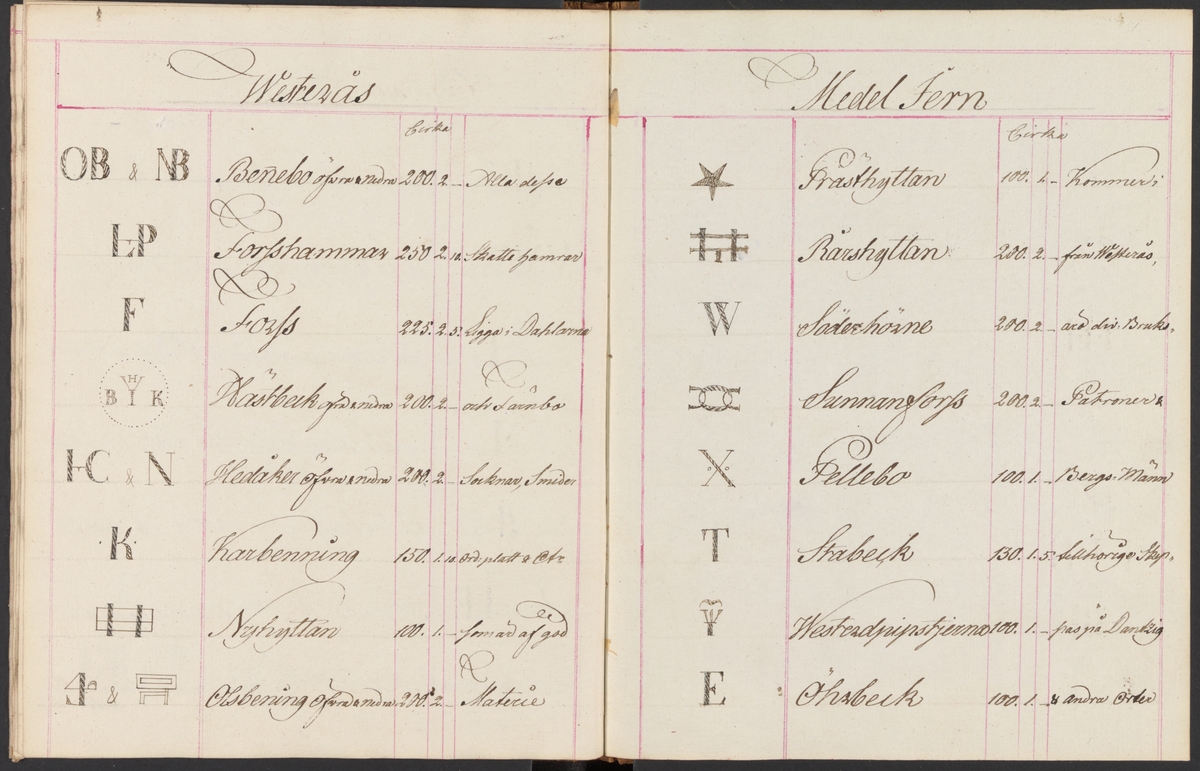 Westerås
Cirka
OB & NB Bennebo öfvra & nedra 200. 2. – Alla desse
HP Forsshammar 250 2. 10. Skatte hamrar
F Forss 225. 2. 5. Ligga i Dahlarne
B H Y K Hästbeck öfra & nedra 200. 2. – och Färnbo
HC & N Hedåker öfvra & nedra 200. 2. – Socknar, Smider
K Karbenning 150. 1. 10. ord: platt & Ctr
H Nyhyttan 100. 1. – som är af god
& Olsbening öfvra & nedra 200. 2. – Materie
Medel Jern
Cirka
Prästhyttan 100. 1. – Kommer i
Rärshyttan 200. 2. – från Westerås,
W Söderhörne 200. 2 – are div: Bruks-
Sunnanforss 200. 2 – Patroner &
X Pellebo 100. 1. – Bergs-Männ
T Starbeck 130. 1. 5. tillhörige Skep-
Westerdpipstjerna 100. 1. – pas på Dantzig
E Öhrbeck 100. 1. – & andra Orter